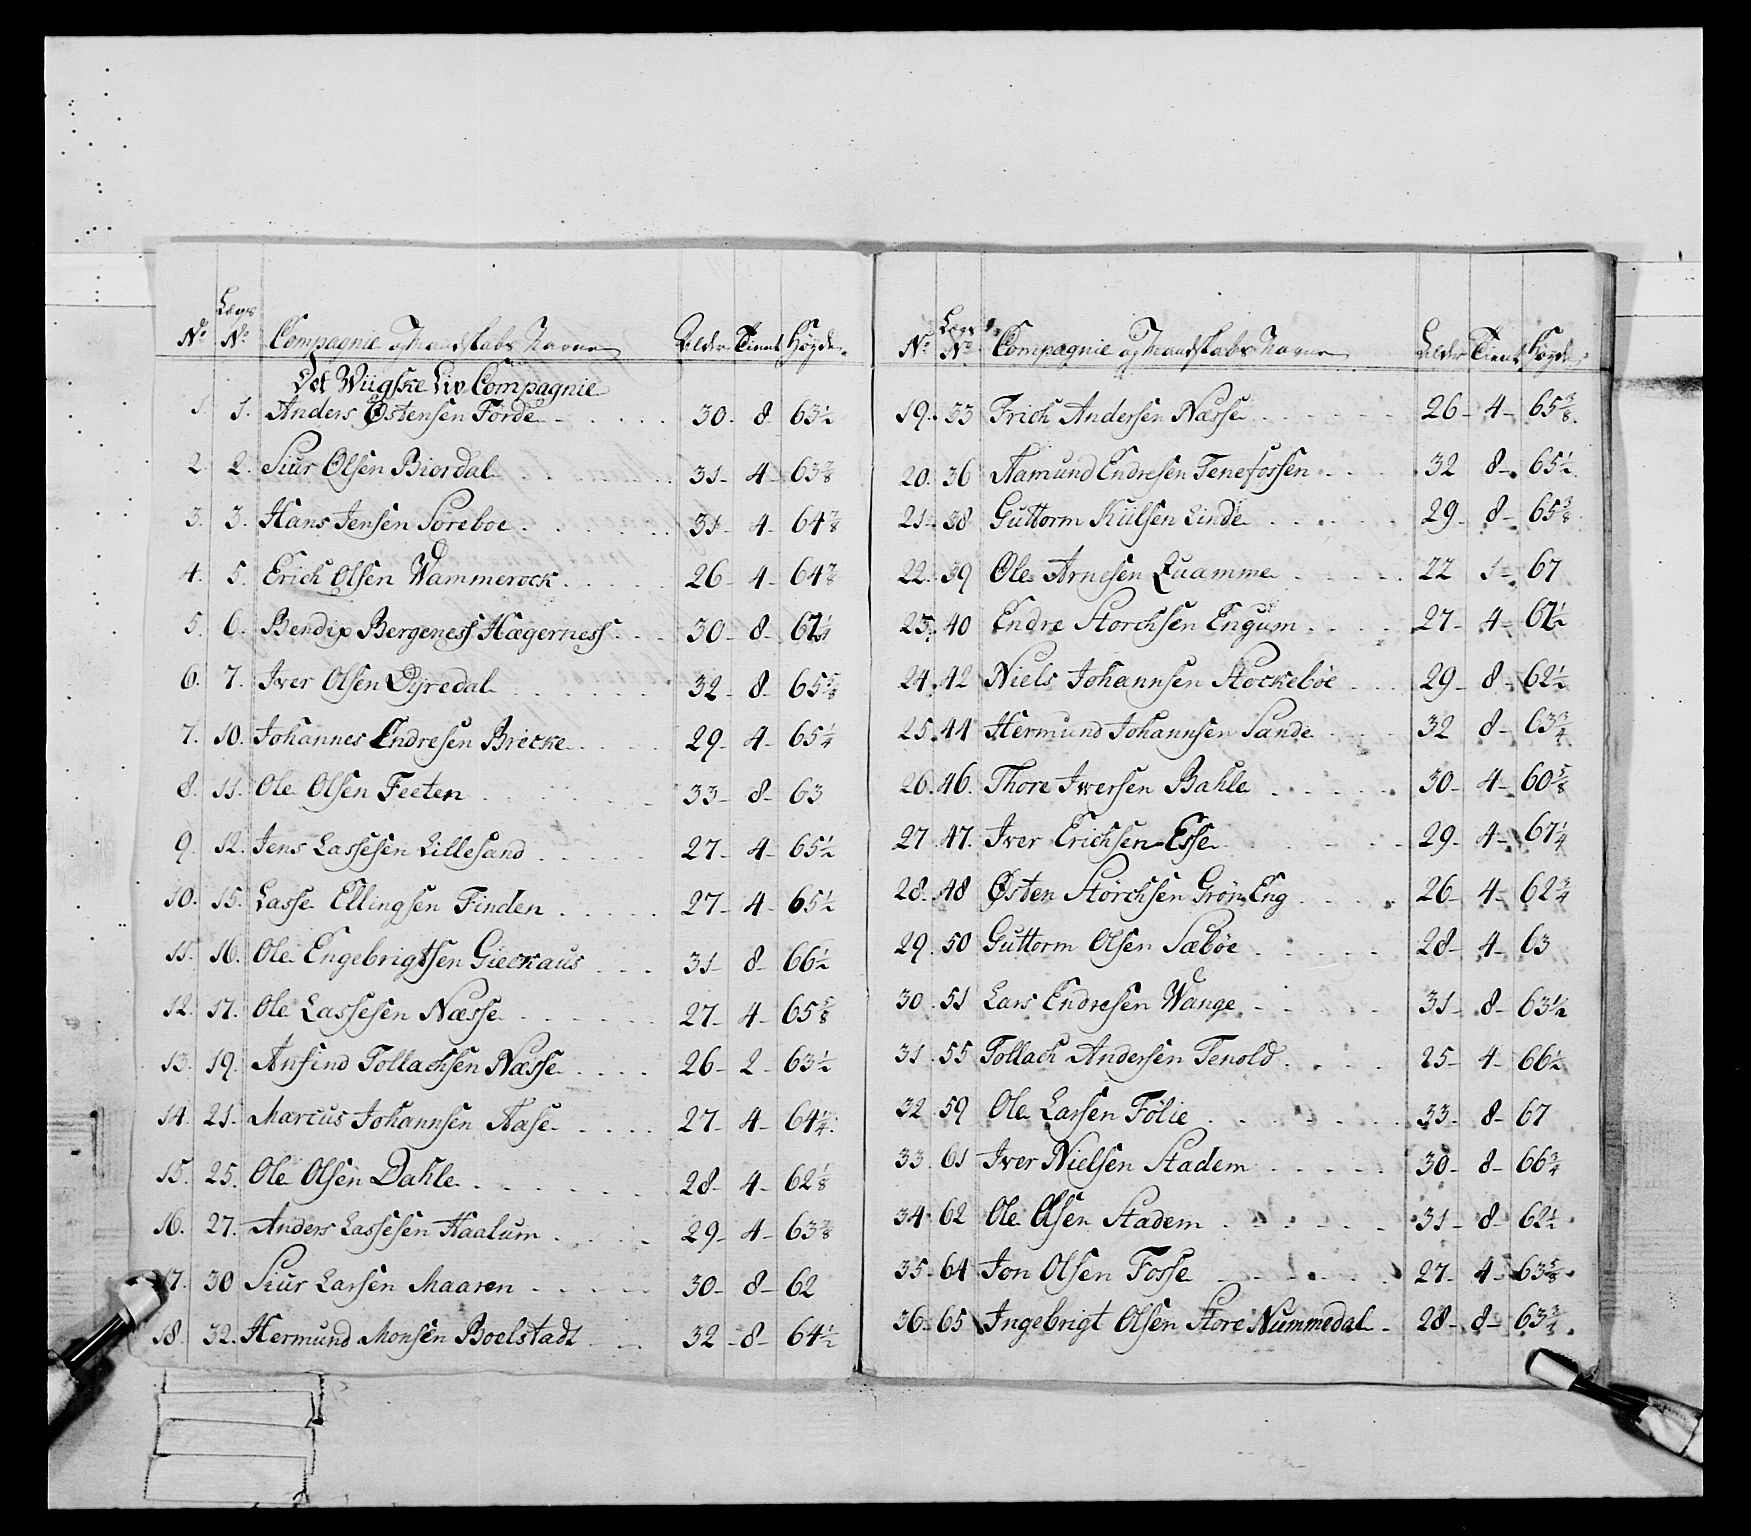 No Lægs No Compagnie og Mandskabs Navne Alder Tient Høyde
Det Wiigske Liv Compagnie
1. 1. Anders Østensen Förde 30. 8 63 1/2
2. 2. Siur Olsen Biordal 31 4 63 7/8
3. 3. Hans Jensen Söreboe 31 4 64 7/8
4. 5. Erich Olsen Wammerock 26 4 64 7/8
5. 6. Bendix Bergeness Hægerness 30 8
6. 7. Iver Olsen Dyredal 32 8 65 5/8
7. 10. Johannes Endresen Brecke 29 4 65 1/4
8. 11. Ole Olsen Feeten 33 8 63
9. 12. Jens Lassesen Lillesand 27 4 65 1/2
10. 15. Lasse Ellingsen Finden 27 4 65 1/2
11. 16. Ole Engebrigtsen Gieckaus 31 8 66 1/2
12. 17. Ole Lassesen Næsse 27 4 65 5/8
13. 19. Anfind Tollachsen Næsse 26 2 63 1/2
14. 21. Marcus Johannsen Aase 27 4 64 1/4
15. 25. Ole Olsen Dahle 28 4 62 1/8
16. 27. Anders Lassesen Haalum 29 4 63 7/8
17. 30 Siur Larsen Maaren 30 8 62
18. 32. Hermund Monsen Boelstadt 32 8 64 1/2
No Lægs No Compagnie og Mandskabs Navne Alder Tient Høyde
19. 33 Erich Andersen Næsse 26 4 65 3/8
20. 36 Aamund Endresen Tenefossen 32 8 65 1/2
21. 38 Guttorm Kiilsen Linde 29 8 65 3/8
22. 39 Ole Arnesen Quamme 22 1 67
23. 40 Endre Storchsen Engum 27 4
24. 42 Niels Johannsen Stockebøe 29 8 62 1/2
25. 44 Hermund Johannsen Sande 32 8 63 3/4
26. 46. Thore Iwersen Bahle 30 4 60 5/8
27 47. Iver Erichsen Esse 29 4 67 1/4
28. 48 Østen Störchsen Grön Eng 26 4 62 3/4
29. 50 Guttorm Olsen Sæbøe 28 4 63
30. 51 Lars Endresen Wange 31 8 63 1/2
31. 55 Tollach Andersen Tenold 25 4 66 1/2
32. 59 Ole Larsen Fölie 33 8 67
33. 61 Iver Nielsen Stadem 30 8 66 3/4
34. 62 Ole Olsen Stadem 31 8 62 1/2
35. 64 Jon Olsen Fosse 27 4 63 5/8
36. 65 Ingebrigt Olsen Store Nummedal 28 8 63 3/4